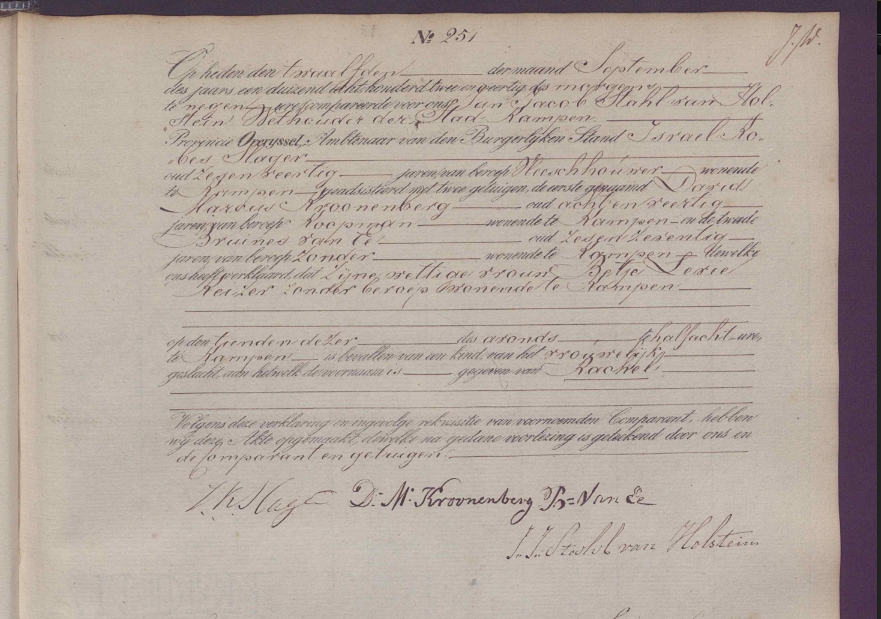 J. W.
No 251
Op heden den twaalfden der maand September
des jaars een duizend acht honderd twee en veertig des morgens
te negen ure compareerde voor ons Jan Jacob Stahl van Hol-
stein Wethouder der Stad Kampen
Provincie Overyssel, Ambtenaar van den Burgerlyken Stand Israel Ko-
bes Slager
oud zegen veertig jaren, van beroep Vleeschhouwer wonende
te Kampen geadsisteerd met twee getuigen, de eerste genaamd David
Marcus Kroonenberg oud acht en veertig
jaren, van beroep Koopman wonende te Kampen en de tweede
Bruines van Ee oud zegen zeventig
jaren, van beroep zonder wonende te Kampen dewelke
ons heeft verklaard, dat zijne wettige vrouw Betje Levie
Keizer zonder beroep wonende te Kampen
op den tienden dezer des avonds te half acht ure,
te Kampen is bevallen van een kind, van het vrouwelijk
geslacht, aan hetwelk de voornaam is gegeven van Rachel
Volgens deze verklaring en ingevolge rekwisitie van voornoemden Comparant, hebben
wij deze Akte opgemaakt, dewelke na gedane voorlezing is geteekend door ons en
de Comparant en getuigen.
I. K. Slager D: M: Kroonenberg B= Van Ee
J. J. Stahl van Holstein